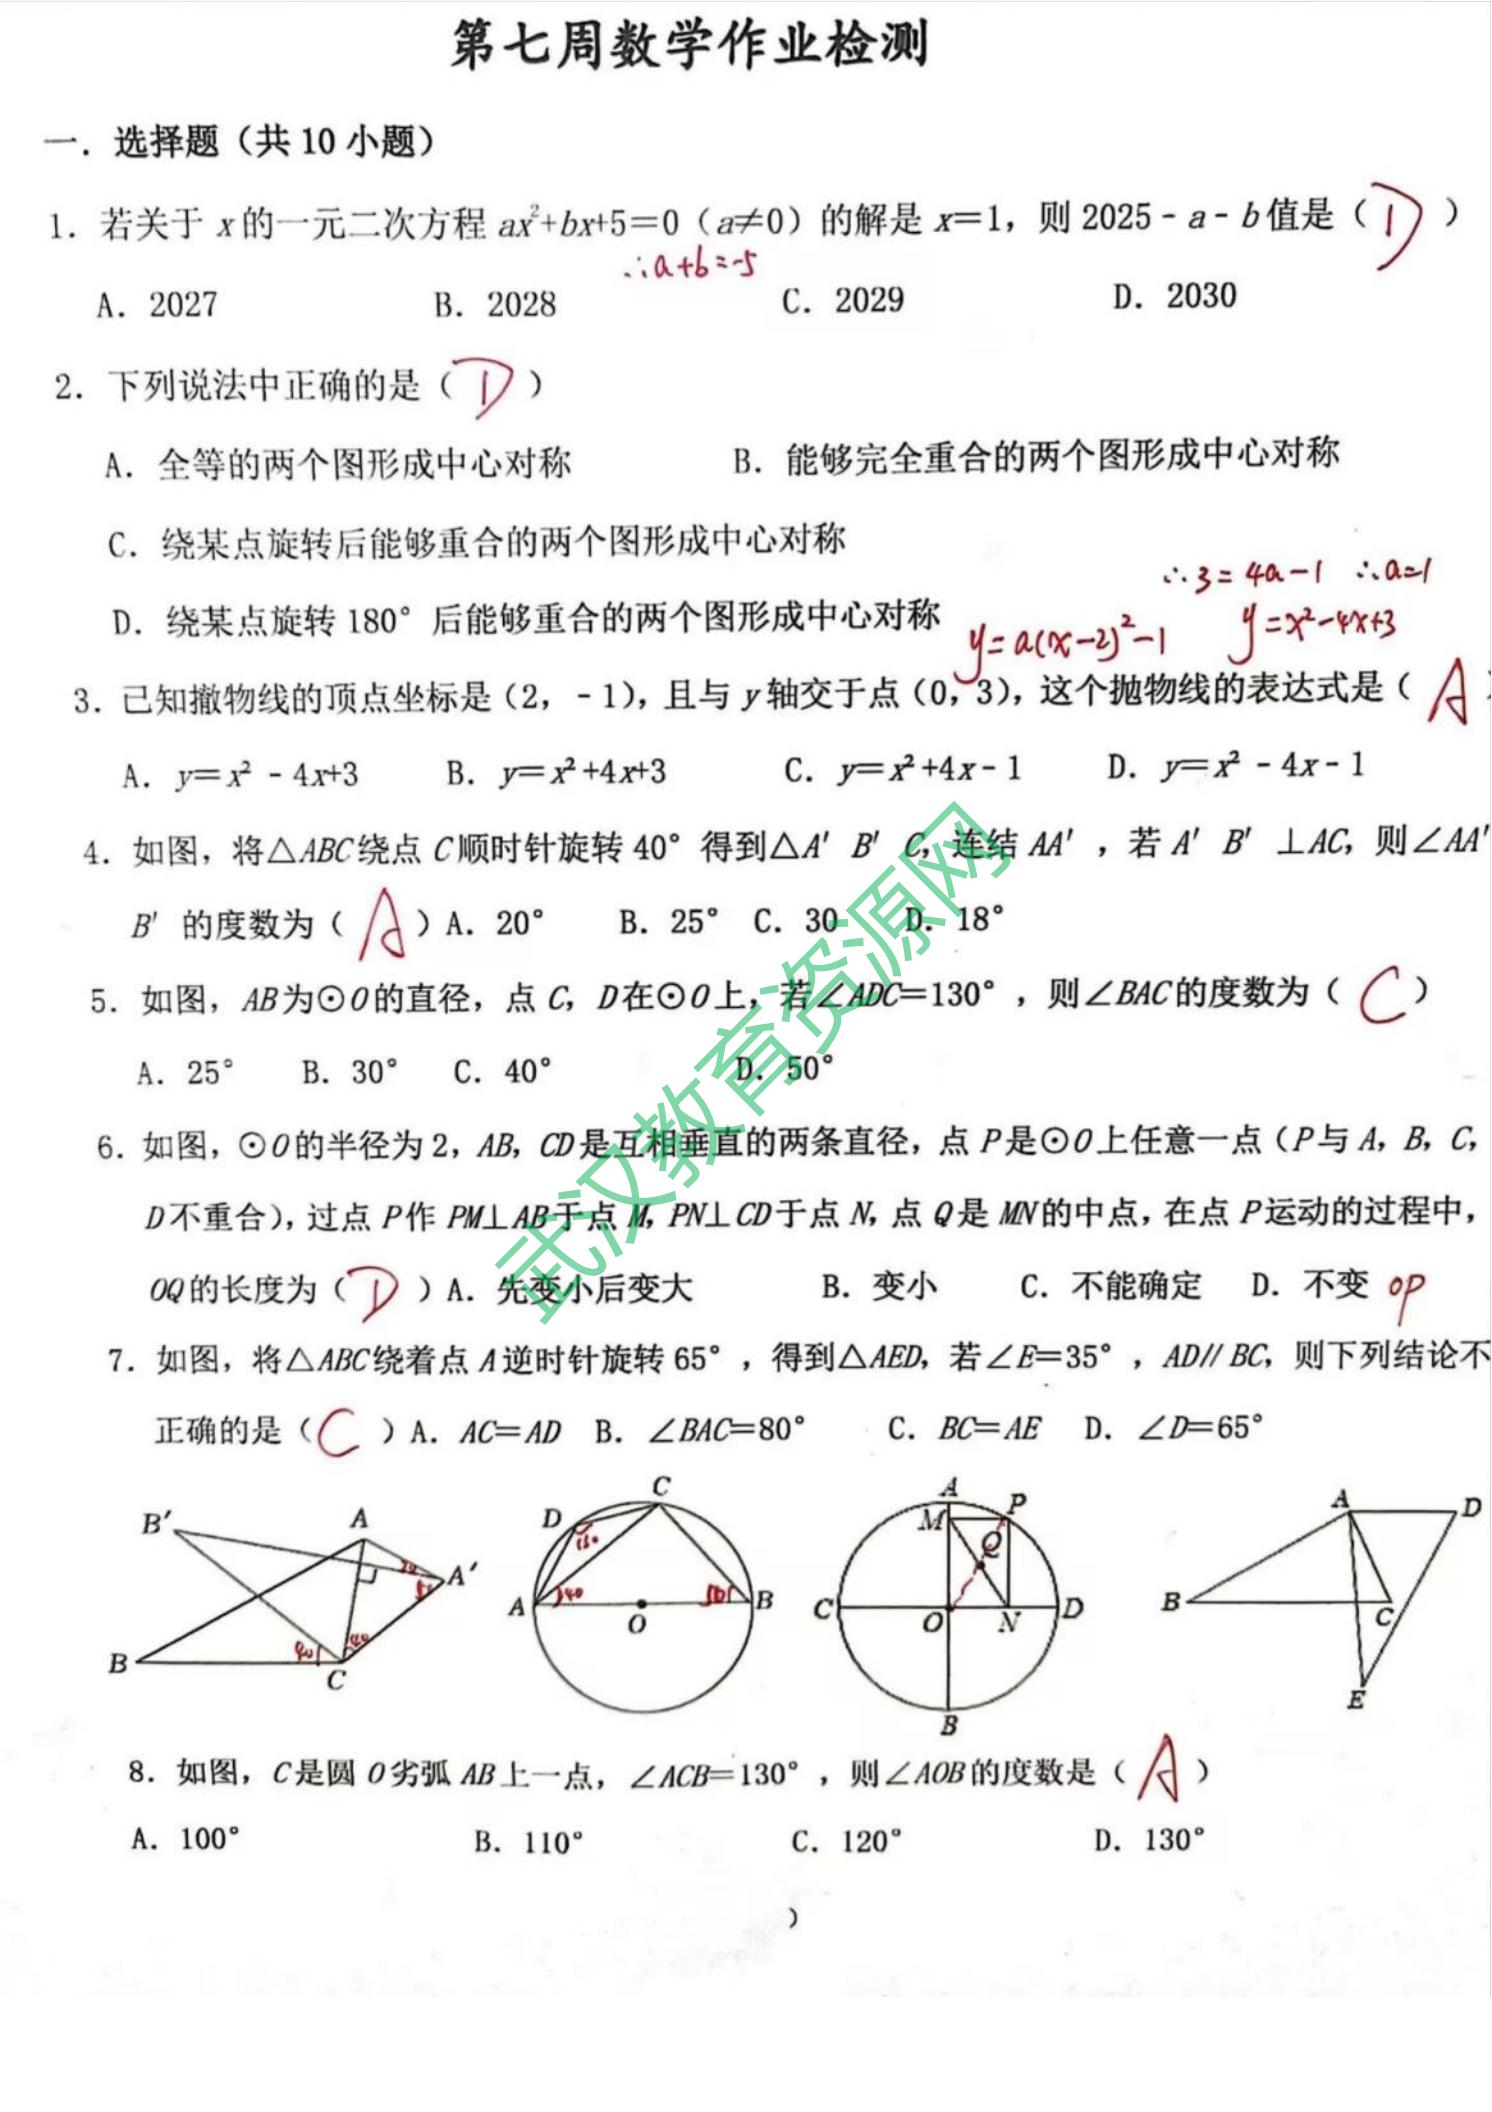 第七周数学作业检测
一．选择题（共 10 小题）
1．若关于 x 的一元二次方程 ax²+bx+5＝0（a≠0）的解是 x＝1，则 2025﹣a﹣b 值是（ D ）
∴a+b=-5
A．2027 B．2028 C．2029 D．2030
2．下列说法中正确的是（ D ）
A．全等的两个图形成中心对称 B．能够完全重合的两个图形成中心对称
C．绕某点旋转后能够重合的两个图形成中心对称
∴3=4a-1 ∴a=1
D．绕某点旋转 180° 后能够重合的两个图形成中心对称
y=a(x-2)²-1 y=x²-4x+3
3．已知撤物线的顶点坐标是（2，﹣1），且与 y 轴交于点（0，3），这个抛物线的表达式是（ A ）
A．y＝x²﹣4x+3 B．y＝x²+4x+3 C．y＝x²+4x﹣1 D．y＝x²﹣4x﹣1
4．如图，将△ABC 绕点 C 顺时针旋转 40° 得到△A′B′C，连结 AA′，若 A′B′⊥AC，则∠AA′
B′ 的度数为（ A ）A．20° B．25° C．30 D．18°
5．如图，AB 为⊙O 的直径，点 C，D 在⊙O 上，若∠ADC＝130°，则∠BAC 的度数为（ C ）
A．25° B．30° C．40° D．50°
6．如图，⊙O 的半径为 2，AB，CD 是互相垂直的两条直径，点 P 是⊙O 上任意一点（P 与 A，B，C，
D 不重合），过点 P 作 PM⊥AB 于点 M，PN⊥CD 于点 N，点 Q 是 MN 的中点，在点 P 运动的过程中，
OQ 的长度为（ D ）A．先变小后变大 B．变小 C．不能确定 D．不变 OP
7．如图，将△ABC 绕着点 A 逆时针旋转 65°，得到△AED，若∠E＝35°，AD∥BC，则下列结论不
正确的是（ C ）A．AC＝AD B．∠BAC＝80° C．BC＝AE D．∠D＝65°
B′ A A′ B C 20 50 40 40
D C A O B 130 40 50
A M P Q C O N D B
A D B C E
8．如图，C 是圆 O 劣弧 AB 上一点，∠ACB＝130°，则∠AOB 的度数是（ A ）
A．100° B．110° C．120° D．130°
）
武汉教育资源网